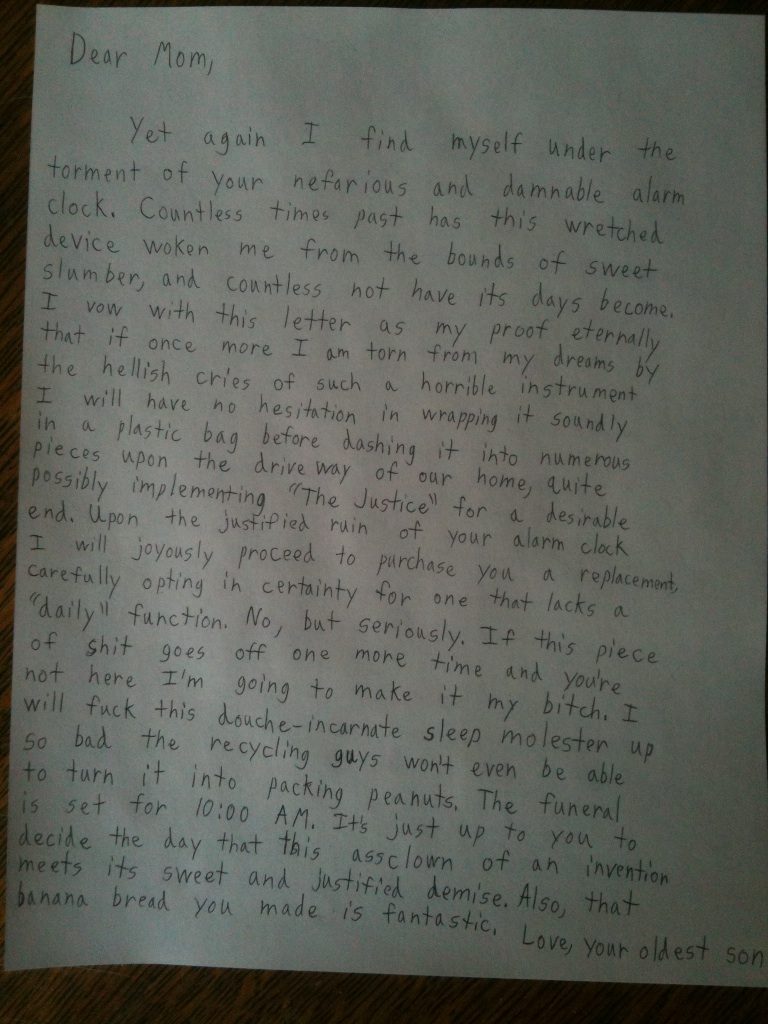 Dear Mom,
Yet again I find myself under the
torment of your nefarious and damnable alarm
clock. Countless times past has this wretched
device woken me from the bounds of sweet
slumber, and countless not have its days become.
I vow with this letter as my proof eternally
that if once more I am torn from my dreams by
the hellish cries of such a horrible instrument
I will have no hesitation in wrapping it soundly
in a plastic bag before dashing it into numerous
pieces upon the driveway of our home, quite
possibly implementing "The Justice" for a desirable
end. Upon the justified ruin of your alarm clock
I will joyously proceed to purchase you a replacement,
carefully opting in certainty for one that lacks a
"daily" function. No, but seriously. If this piece
of shit goes off one more time and you're
not here I'm going to make it my bitch. I
will fuck this douche-incarnate sleep molester up
so bad the recycling guys won't even be able
to turn it into packing peanuts. The funeral
is set for 10:00 AM. It's just up to you to
decide the day that this assclown of an invention
meets its sweet and justified demise. Also, that
banana bread you made is fantastic.
Love, your oldest son